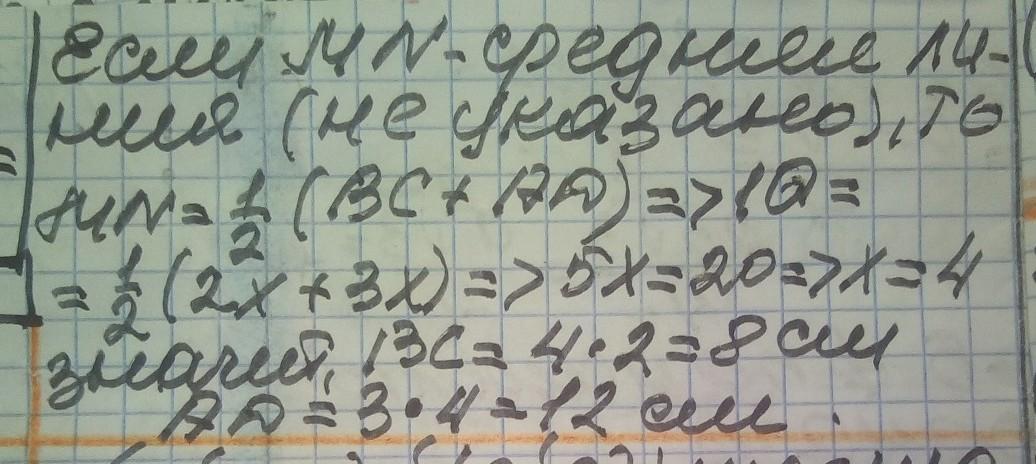 Если MN-средняя ли-
ния (не указано), то
MN = 1/2 (BC + AD) => 10 =
= 1/2 (2x + 3x) => 5x = 20 => x = 4
значит, BC = 4·2 = 8 см
AD = 3·4 = 12 см.